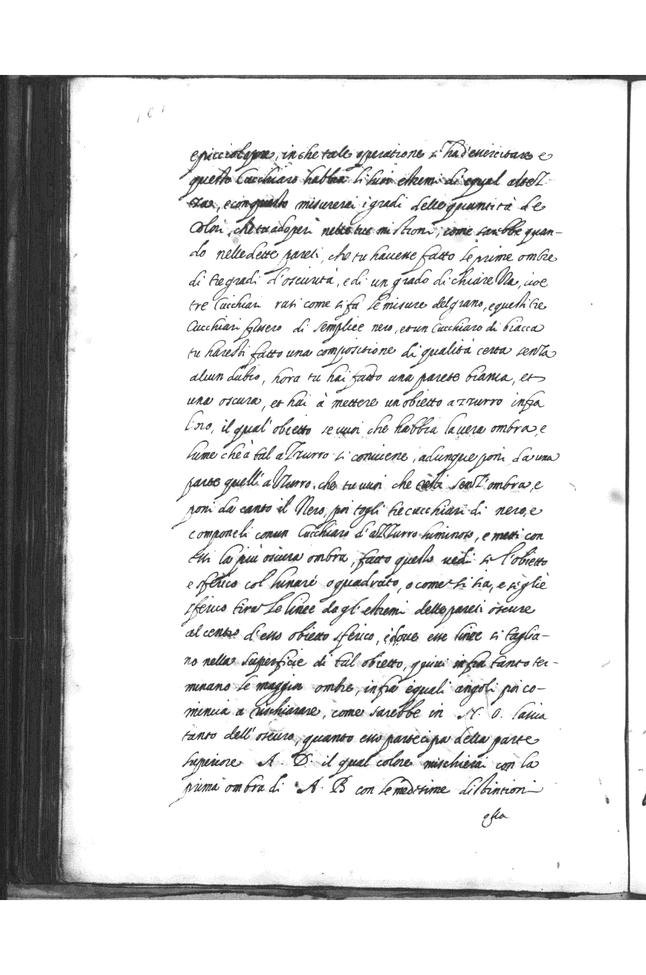 e picciol opra, in che tale operatione si ha d'essercitare e
questo Cucchiaro habbia li suoi estremi di egual altez-
za, e con questo misurerai i gradi delle quantità de
Colori, che tu adoperi nelle tue mistioni, come sarebbe quan-
do nelle dette pareti, che tu havesse fatto le prime ombre
di tre gradi d'oscurità, e di un grado di chiarezza, cioè
tre Cucchiari rasi come si fa le misure del grano, e questi tre
Cucchiari fussero di semplice nero, et un Cucchiaro di biacca
tu haresti fatto una compositione di qualità certa senza
alcun dubio, hora tu hai fatto una parete bianca, et
una oscura, et hai à mettere un obietto azzurro infra
loro, il qual' obietto se vuoi che habbia la vera ombra, e
lume ch'à tal azzurro si conviene, adunque poni da una
parte quell' azzurro, che tu vuoi che resti senz'ombra, e
poni da canto il Nero, poi togli tre cucchiari di nero, e
componeli con un Cucchiaro d'azzurro luminoso, e metti con
essi la più oscura ombra, fatto questo vedi si l'obietto
e sferico col lunare o quadrato, o come si sia, e si gl'è
sferico tira le linee da gl'estremi delle pareti oscure
al centro d'esso obietto sferico, e dove esse linee si taglia-
no nella superficie di tal obietto, quivi infra tanto ter-
minano le maggiori ombre, infra equali angoli poi co-
mincia a rischiarare, come sarebbe in N. O. lascia
tanto dell'oscuro, quanto esso partecipa della parete
superiore A. D. il qual colore mischierai con la
prima ombra di A. B con le medesime distintioni
esta